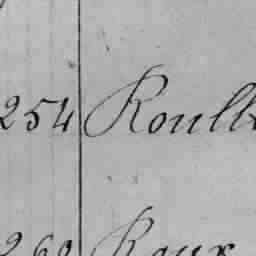 254 Roull
260 Roux